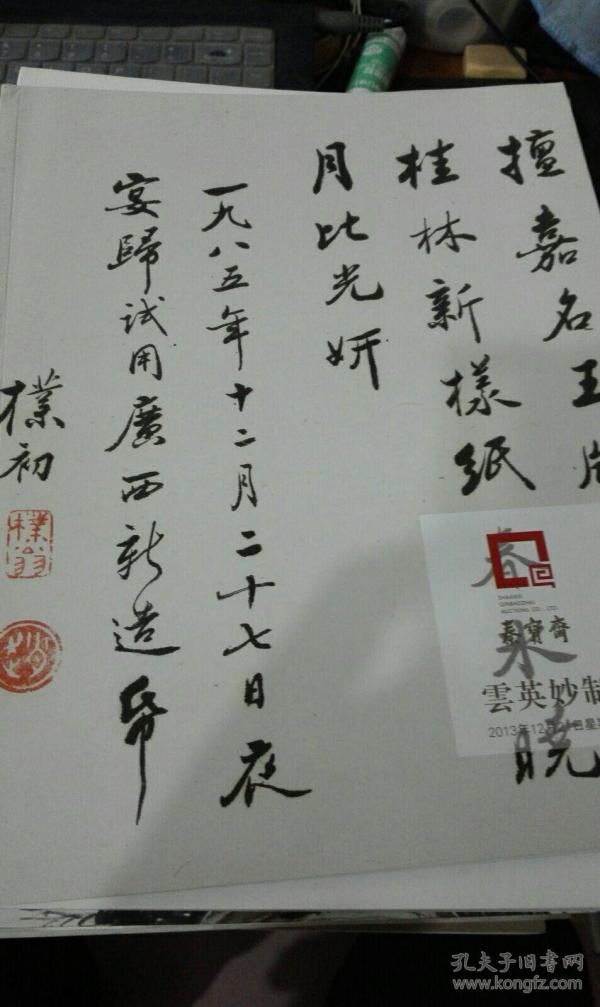 擅嘉名玉
桂林新樣紙春氷曉
月比光妍
一九八五年十二月二十七日夜
宴歸試用廣西新造帋
樸初
樸翁
SHAANXI
QINBAOZHAI
AUCTIONS CO., LTD.
秦寶齋
雲英妙制
2013年12月
孔夫子旧书网
www.kongfz.com